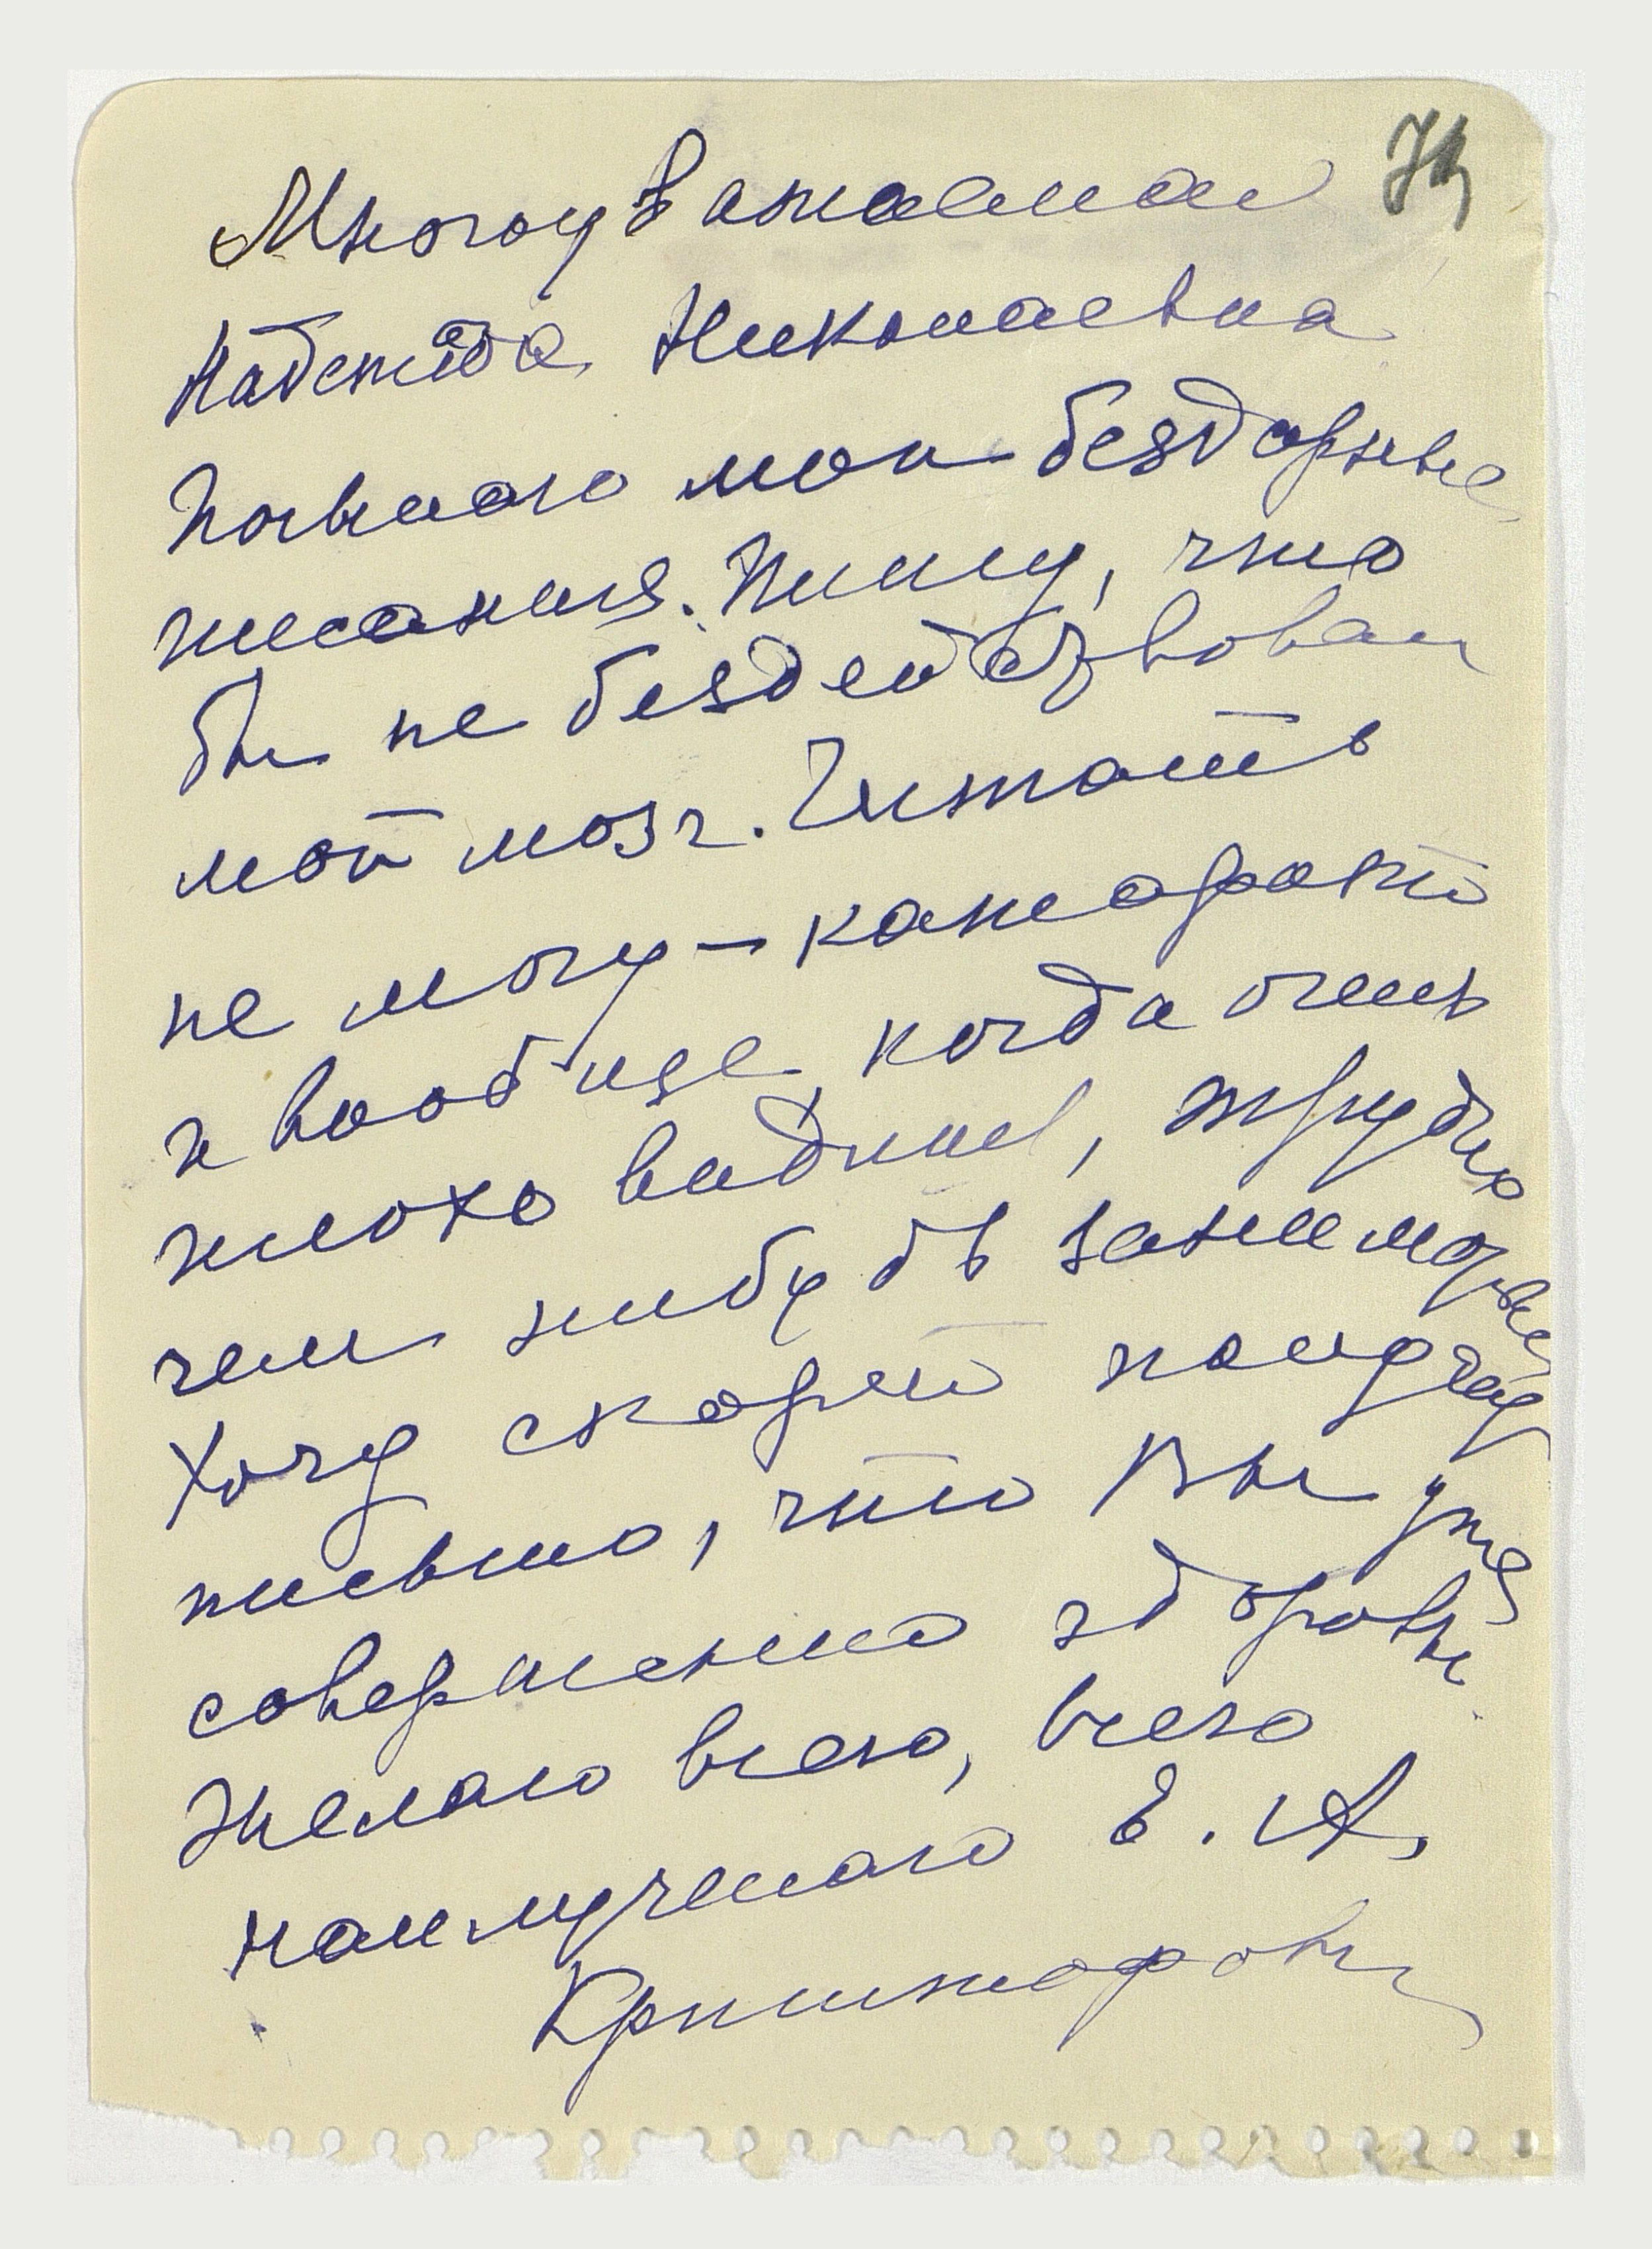 Многоуважаемая
Надежда Николаевна
Посылаю мои бездарные
писания. Пишу, что
бы не бездействовал
мой мозг. Читать
не могу — катаракты
и вообще, когда очень
плохо видишь, трудно
чем нибудь заниматься
Хочу скорей получить
письмо, что Вы уже
совершенно здоровы.
Желаю всего, всего
наилучшего Е. А.